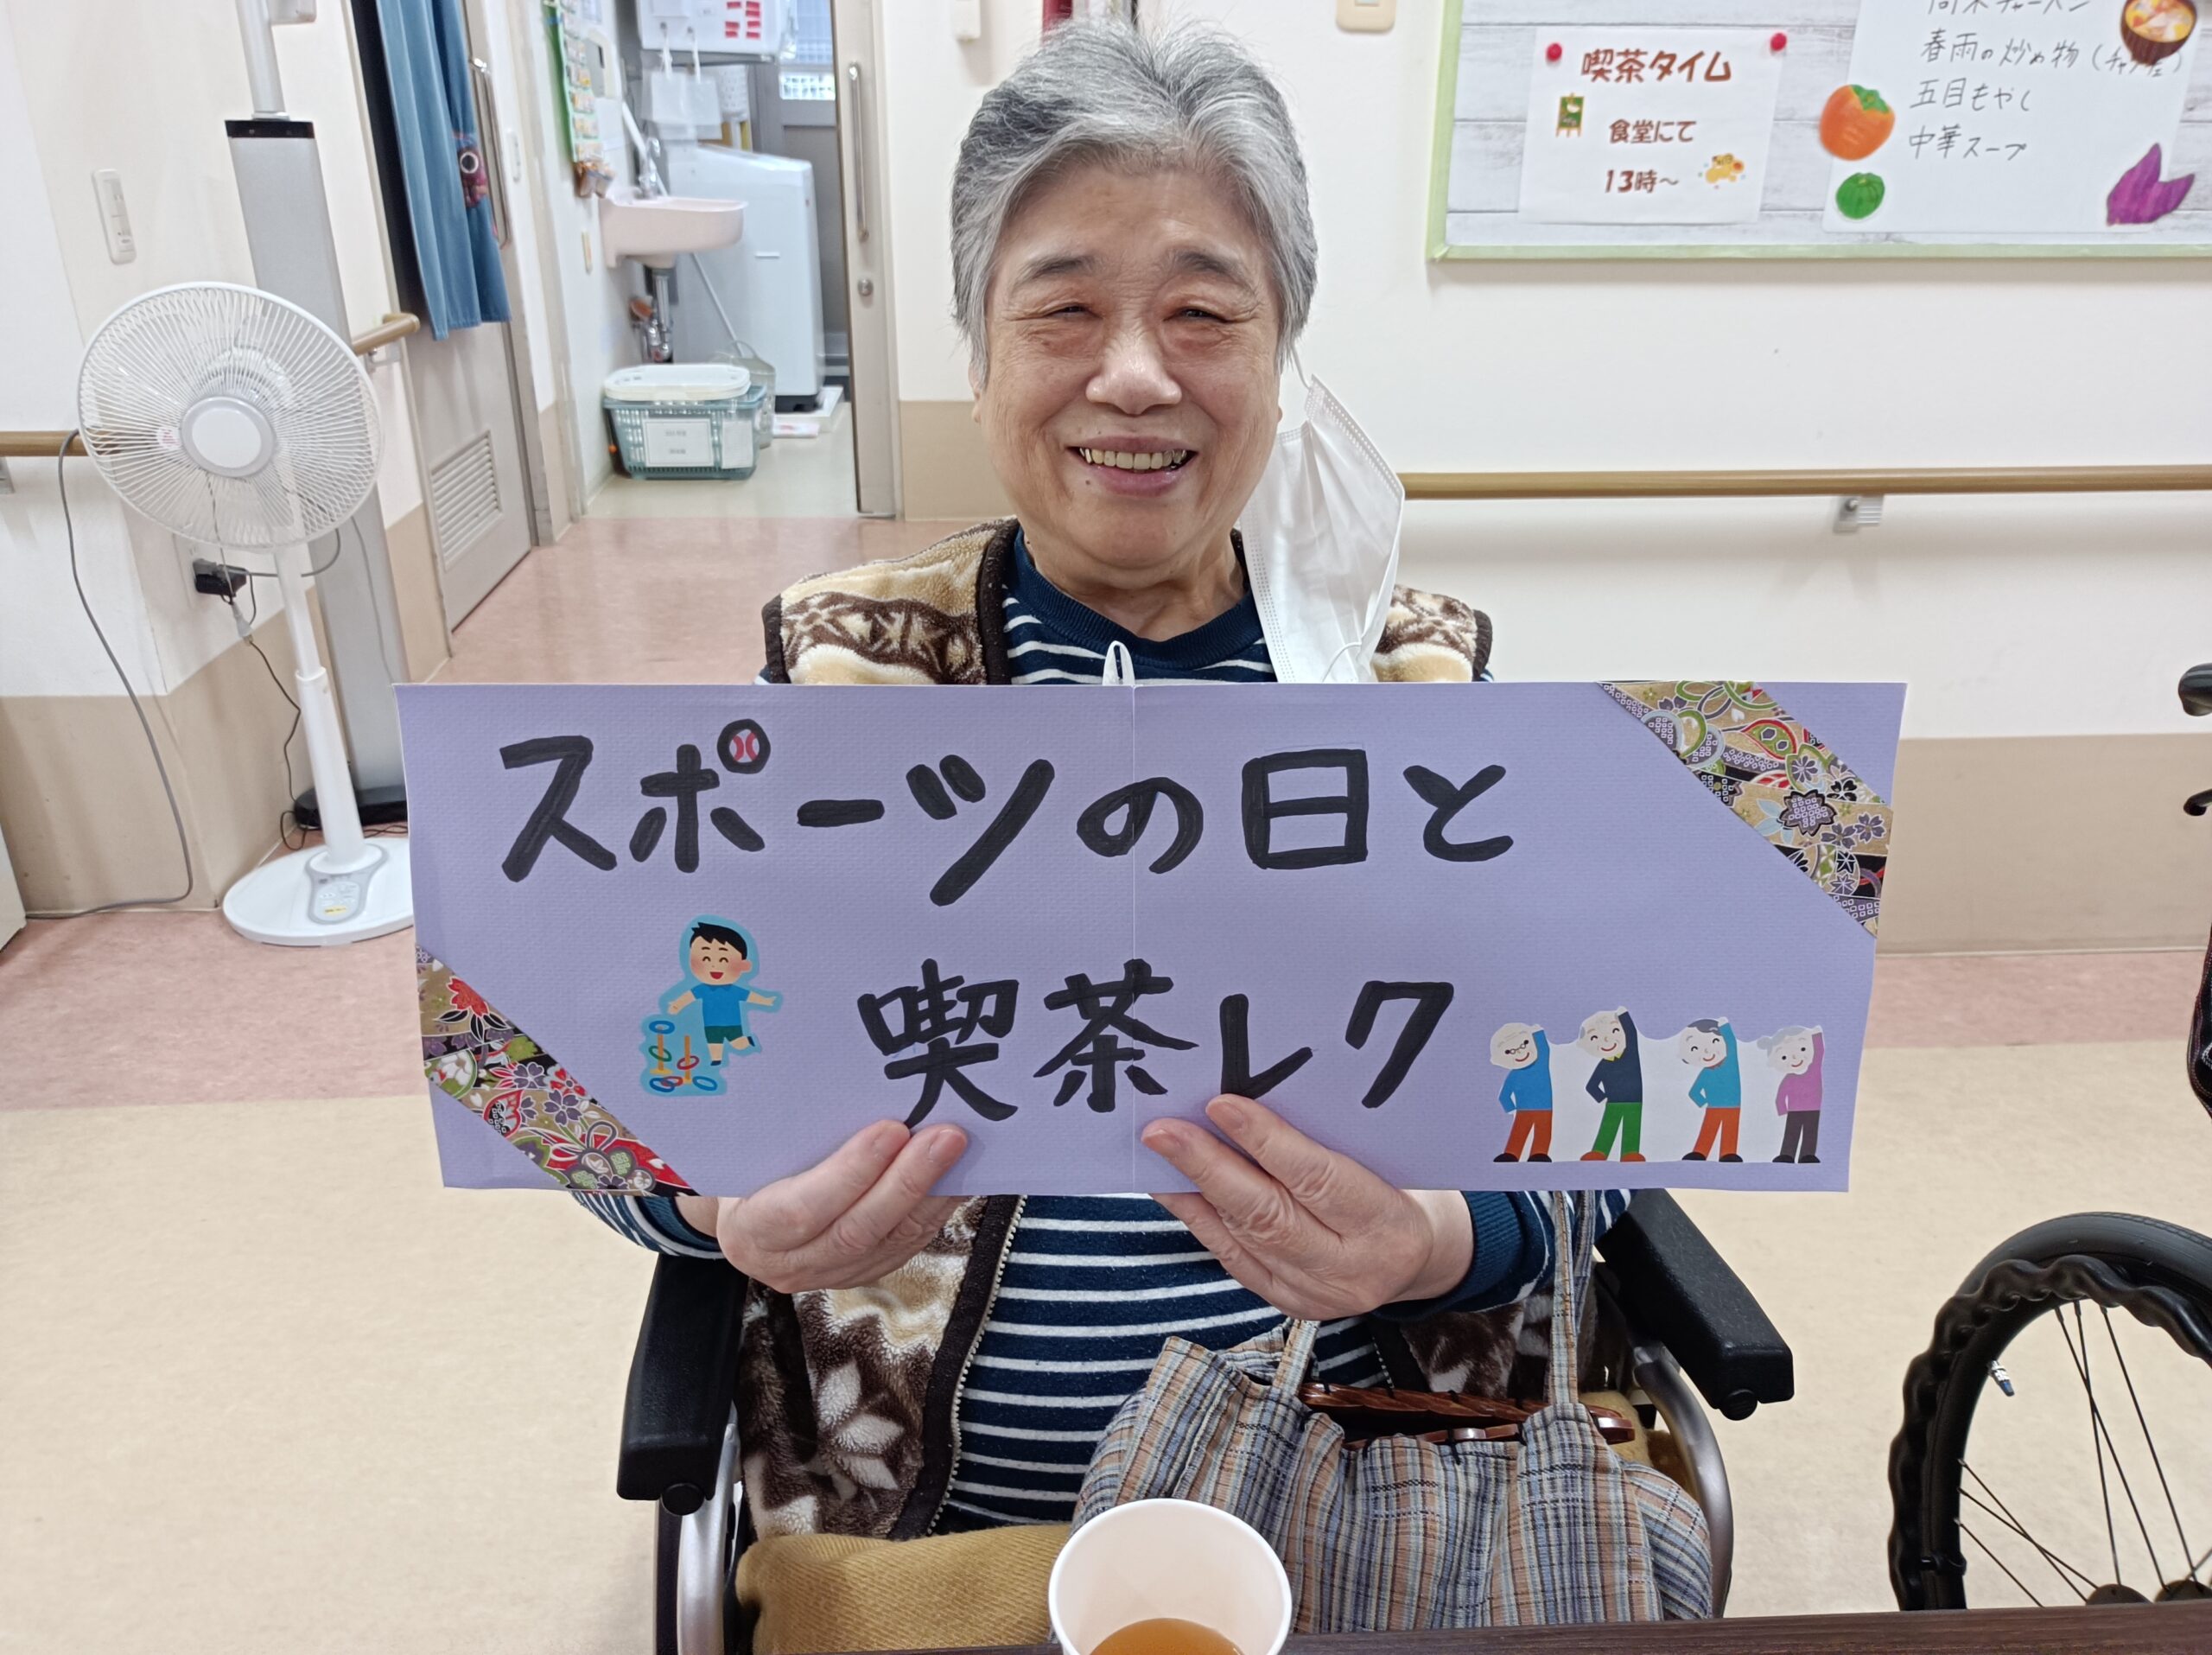 喫茶タイム
食堂にて
13時～
春雨の炒め物
五目もやし
中華スープ
スポーツの日と
喫茶レク